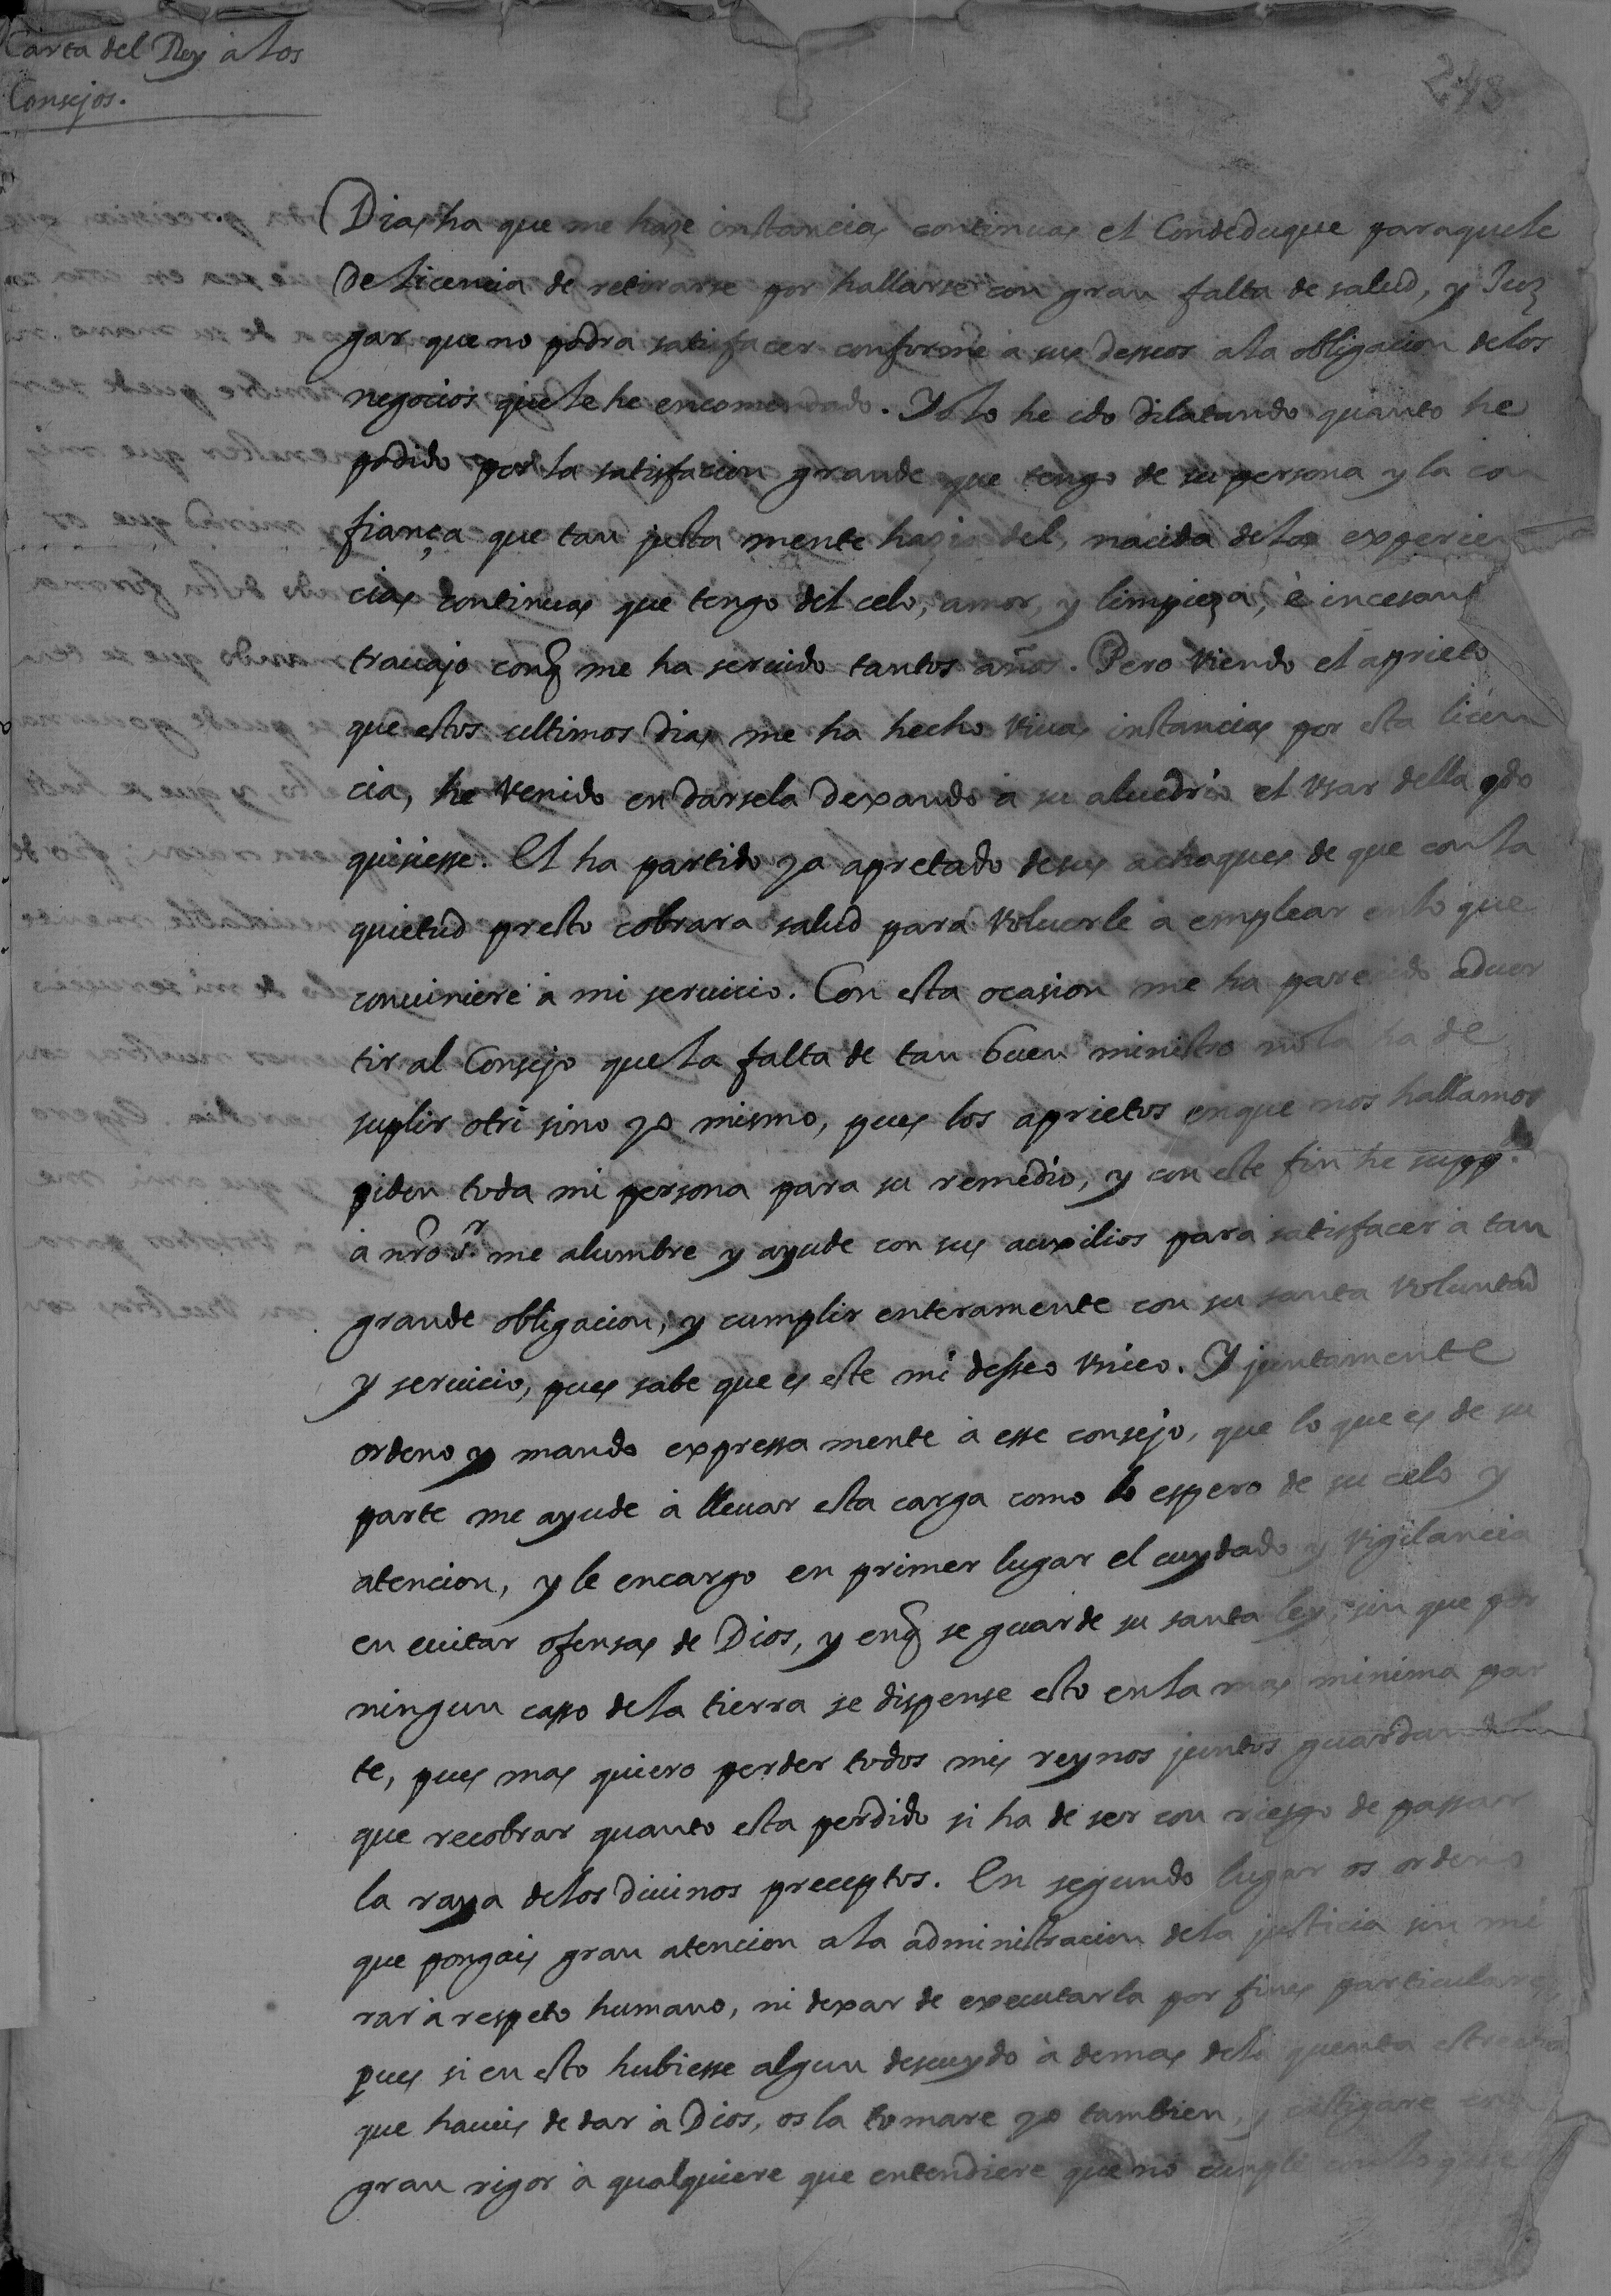 Carta del Rey à los
Consejos.
248
Dias ha que me haze instancias continuas el Condeduque paraquele
de licencia de retirarse por hallarse con gran falta de salud, y Juz
gar que no podra satisfacer conforme à sus desseos ala obligacion delos
negocios que le he encomendado. Yo lo he ido dilatando quanto he
podido por la satisfacion grande que tengo de su persona y la con
fiança que tan justa mente hazia del, nacida delas experien
cias continuas que tengo del celo, amor, y limpieza, è incesant
trauajo conq̃ me ha seruido tantos años. Pero viendo el aprieto
que estos ultimos dias me ha hecho viuas instancias por esta licen
cia, he venido en darsela dexando à su aluedrio el vsar della qdo
quisiesse. El ha partido ya apretado desus achaques de que con la
quietud presto cobrara salud para voluerle à emplear enlo que
conuiniere à mi seruicio. Con esta ocasion me ha parecido aduer
tir al Consejo que la falta de tan buen ministro no la ha de
suplir otri sino yo mismo, pues los aprietos enque nos hallamos
piden toda mi persona para su remedio, y con este fin he supp.do
à nr̃o S.r me alumbre y ayude con sus auxilios para satisfacer à tan
grande obligacion, y cumplir enteramente con su santa voluntad
y seruicio, pues sabe que es este mi desseo vnico. Y juntamente
ordeno y mando expressa mente à esse consejo, que lo que es de su
parte me ayude à lleuar esta carga como lo espero de su celo y
atencion, y le encargo en primer lugar el cuydado y vigilancia
en euitar ofensas de Dios, y enq̃ se guarde su santa ley, sin que por
ningun casso dela tierra se dispense esto enla mas minima par
te, pues mas quiero perder todos mis reynos juntos guardandola
que recobrar quanto esta perdido si ha de ser con riesgo de passar
la raya delos diuinos preceptos. En segundo lugar os ordeno
que pongais gran atencion ala administracion dela justicia sin mi
rar à respeto humano, ni dexar de executarla por fines particulares,
pues si en esto hubiesse algun descuydo à demas dela quenta estrecha
que haueis de dar à Dios, os la tomare yo tambien, y castigare con
gran rigor à qualquiere que entendiere que no cumple con lo que